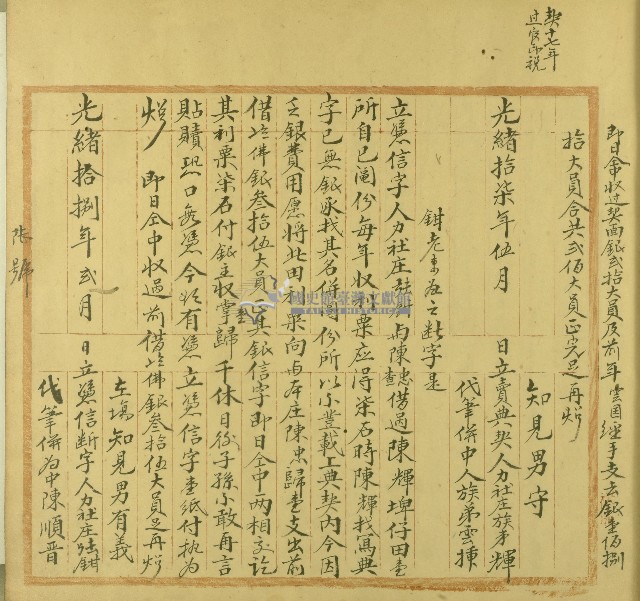 契十七年
過官印稅
即日仝收过契面銀貳拾大員及前年雲國經手支去銀壹佰捌
拾大員合共貳佰大員正完足再炤
知見男守
光緒拾柒年伍月 日立賣典契人力社庄族弟輝
代筆併中人族弟雲
鉗老
立斷字是
立憑信字人力社庄 陳忠借過陳輝埤仔田壹
所自己鬮份每年收利粟应得柒石時陳輝找寫典
字已無銀承找其名併鬮份所以不豊載上典契內今因
乏銀費用愿將此田利粟向与本庄陳忠歸壹支出前
借岺佛銀叁拾伍大員正其銀信字即日仝中兩相交訖
其利粟柒石付銀主收掌歸 千休日後子孫不敢再言
貼贖恐口無憑今欲有憑立憑信字壹紙付执为
炤 即日仝中收過前借岺佛銀叁拾伍大員足再炤
在塲知見男有義
光緒拾捌年貳月 日立憑信断字人力社庄 鉗
代筆併为中陳順晋
張號
國史館臺灣文獻館
TAIWAN HISTORICA